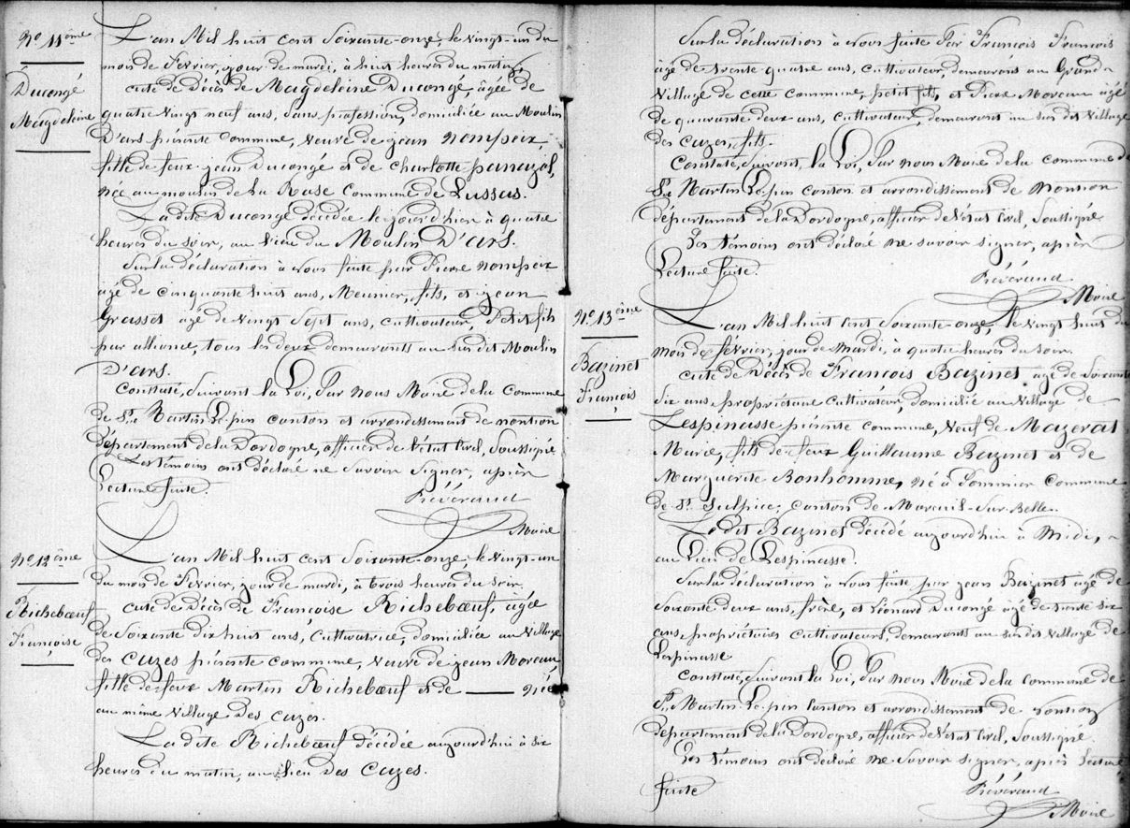 No 11ème
Ducongé
Magdeleine
L'an Mil huit cent Soixante-onze, le vingt-un du
mois de Février, jour de mardi, à huit heures du matin,
cute de Décès de Magdeleine Ducongé, âgée de
quatre vingt neuf ans, Sans profession, domiciliée au Moulin
D'ars présente commune, Veuve de jean nompeix,
fille de feux jean Ducongé et de Charlotte panazol,
née au moulin de La Rase Commune de Lussas.
La dite Ducongé décédée le jour d'hier à quatre
heures du soir, au lieu du Moulin D'ars.
Sur la déclaration à Nous faite par Pierre nompeix
âgé de cinquante huit ans, Meunier, fils, et jean
Grasset âgé de vingt Sept ans, cultivateur, Petit fils
par alliance, tous les deux demeurants au Sus dit Moulin
D'ars.
Constaté, Suivant la Loi, Par nous Maire de la Commune
de St Martin Le pin canton et arrondissement de nontron
Département de la Dordogne, officier de l'état Civil, Soussigné
Les témoins ont déclaré ne Savoir Signer, après
Lecture faite.
Révéraud
Maire
No 12ème
Richebœuf
Françoise
L'an Mil huit cent Soixante-onze, le vingt-un
du mois de Février, jour de mardi, à trois heures du soir
cute de Décès de Françoise Richebœuf, âgée
de Soixante dix huit ans, Cultivatrice, domiciliée au Village
des Cuzes présente commune, Veuve de jean Moreau,
fille de feux Martin Richebœuf et de ——— née
au même Village Des Cuzes.
La dite Richebœuf décédée aujourd'hui à six
heures du matin, au lieu Des Cuzes.
Sur la déclaration à Nous faite Par François François
âgé de trente quatre ans, cultivateur, demeurant au Grand
Village de cette commune, petit fils, et Pierre Moreau âgé
de quarante deux ans, Cultivateur, demeurant au sus dit Village
des Cuzes, fils.
Constaté, Suivant la Loi, Par nous Maire de la commune de
St Martin Le pin canton et arrondissement de Nontron
département de la Dordogne, officier de l'état Civil, Soussigné
Les témoins ont déclaré ne savoir signer, après
Lecture faite.
Révéraud
Maire
No 13ème
Bazinet
François
L'an Mil huit cent Soixante-onze, le vingt huit du
mois de février, jour de Mardi, à quatre heures du Soir.
cute de Décès de François Bazinet âgé de Soixante
dix ans, propriétaire Cultivateur, domicilié au Village de
Lespinasse présente commune, Veuf de Mazerat
Marie, fils de feux Guillaume Bazinet et de
Marguerite Bonhomme, né à Pommier Commune
de St Sulpice, canton de Mareuil-Sur-Belle.
Le dit Bazinet décédé aujourd'hui à Midi,
au Lieu de Lespinasse.
Sur la déclaration à Nous faite par jean Bazinet âgé de
Soixante deux ans, frère, et Léonard Ducongé âgé de trente six
ans, propriétaires cultivateurs, demeurants au sus dit Village de
Lespinasse
Constaté, Suivant la Loi, Par nous Maire de la commune de
St Martin Le pin canton et arrondissement de Nontron
département de la Dordogne, officier de l'état Civil, Soussigné.
Les témoins ont déclaré ne Savoir signer, après Lecture
faite
Révéraud
Maire